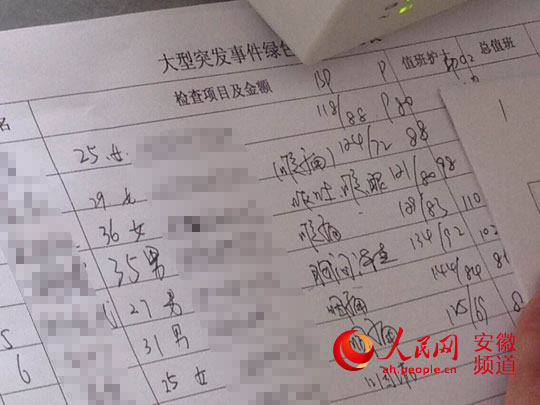 大型突发事件绿色
名 检查项目及金额 BP P 值班护士 总值班
118/88 P80
25 女 (喉痛) 124/72 88
29 女 121/80 98
36 女 喉痛 128/83 110
35 男 胸闷 134/92 102
27 男 咽痛 144/84 81
5 31 男 咽痛
6 25 女
1
人民网 安徽频道
ah.people.cn